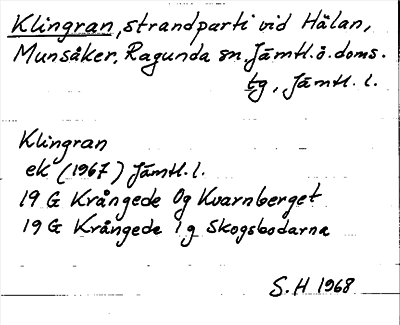 Klingran, strandparti vid Hälan,
Munsåker, Ragunda sn, Jämtl. ö. doms.
tg, Jämtl. l.
Klingran
ek (1967) Jämtl. l.
19 G Krångede 0g Kvarnberget
19 G Krångede 1g Skogsbodarna
S.H 1968